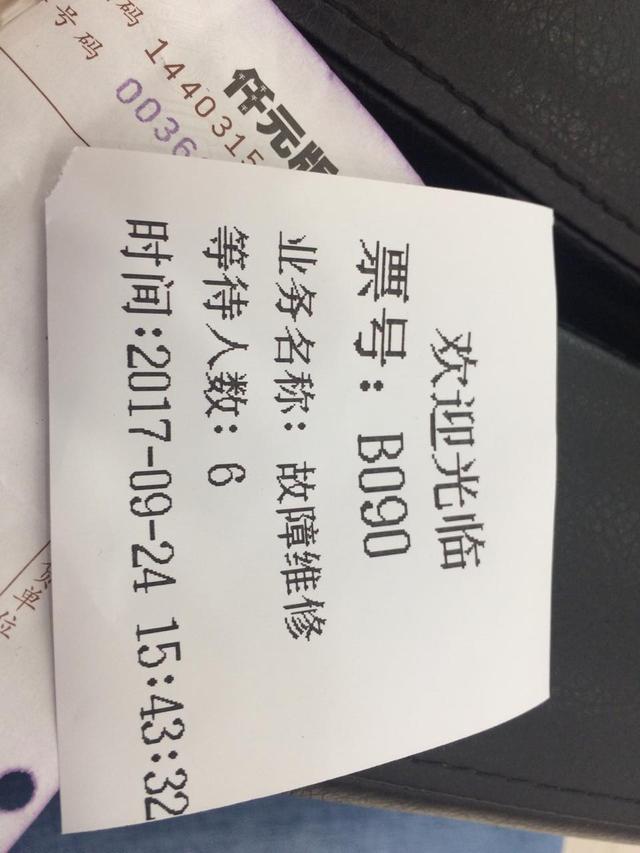 欢迎光临
票号：B090
业务名称：故障维修
等待人数：6
时间:2017-09-24 15:43:32
仟元版
码 1440315
号码 0036
单位